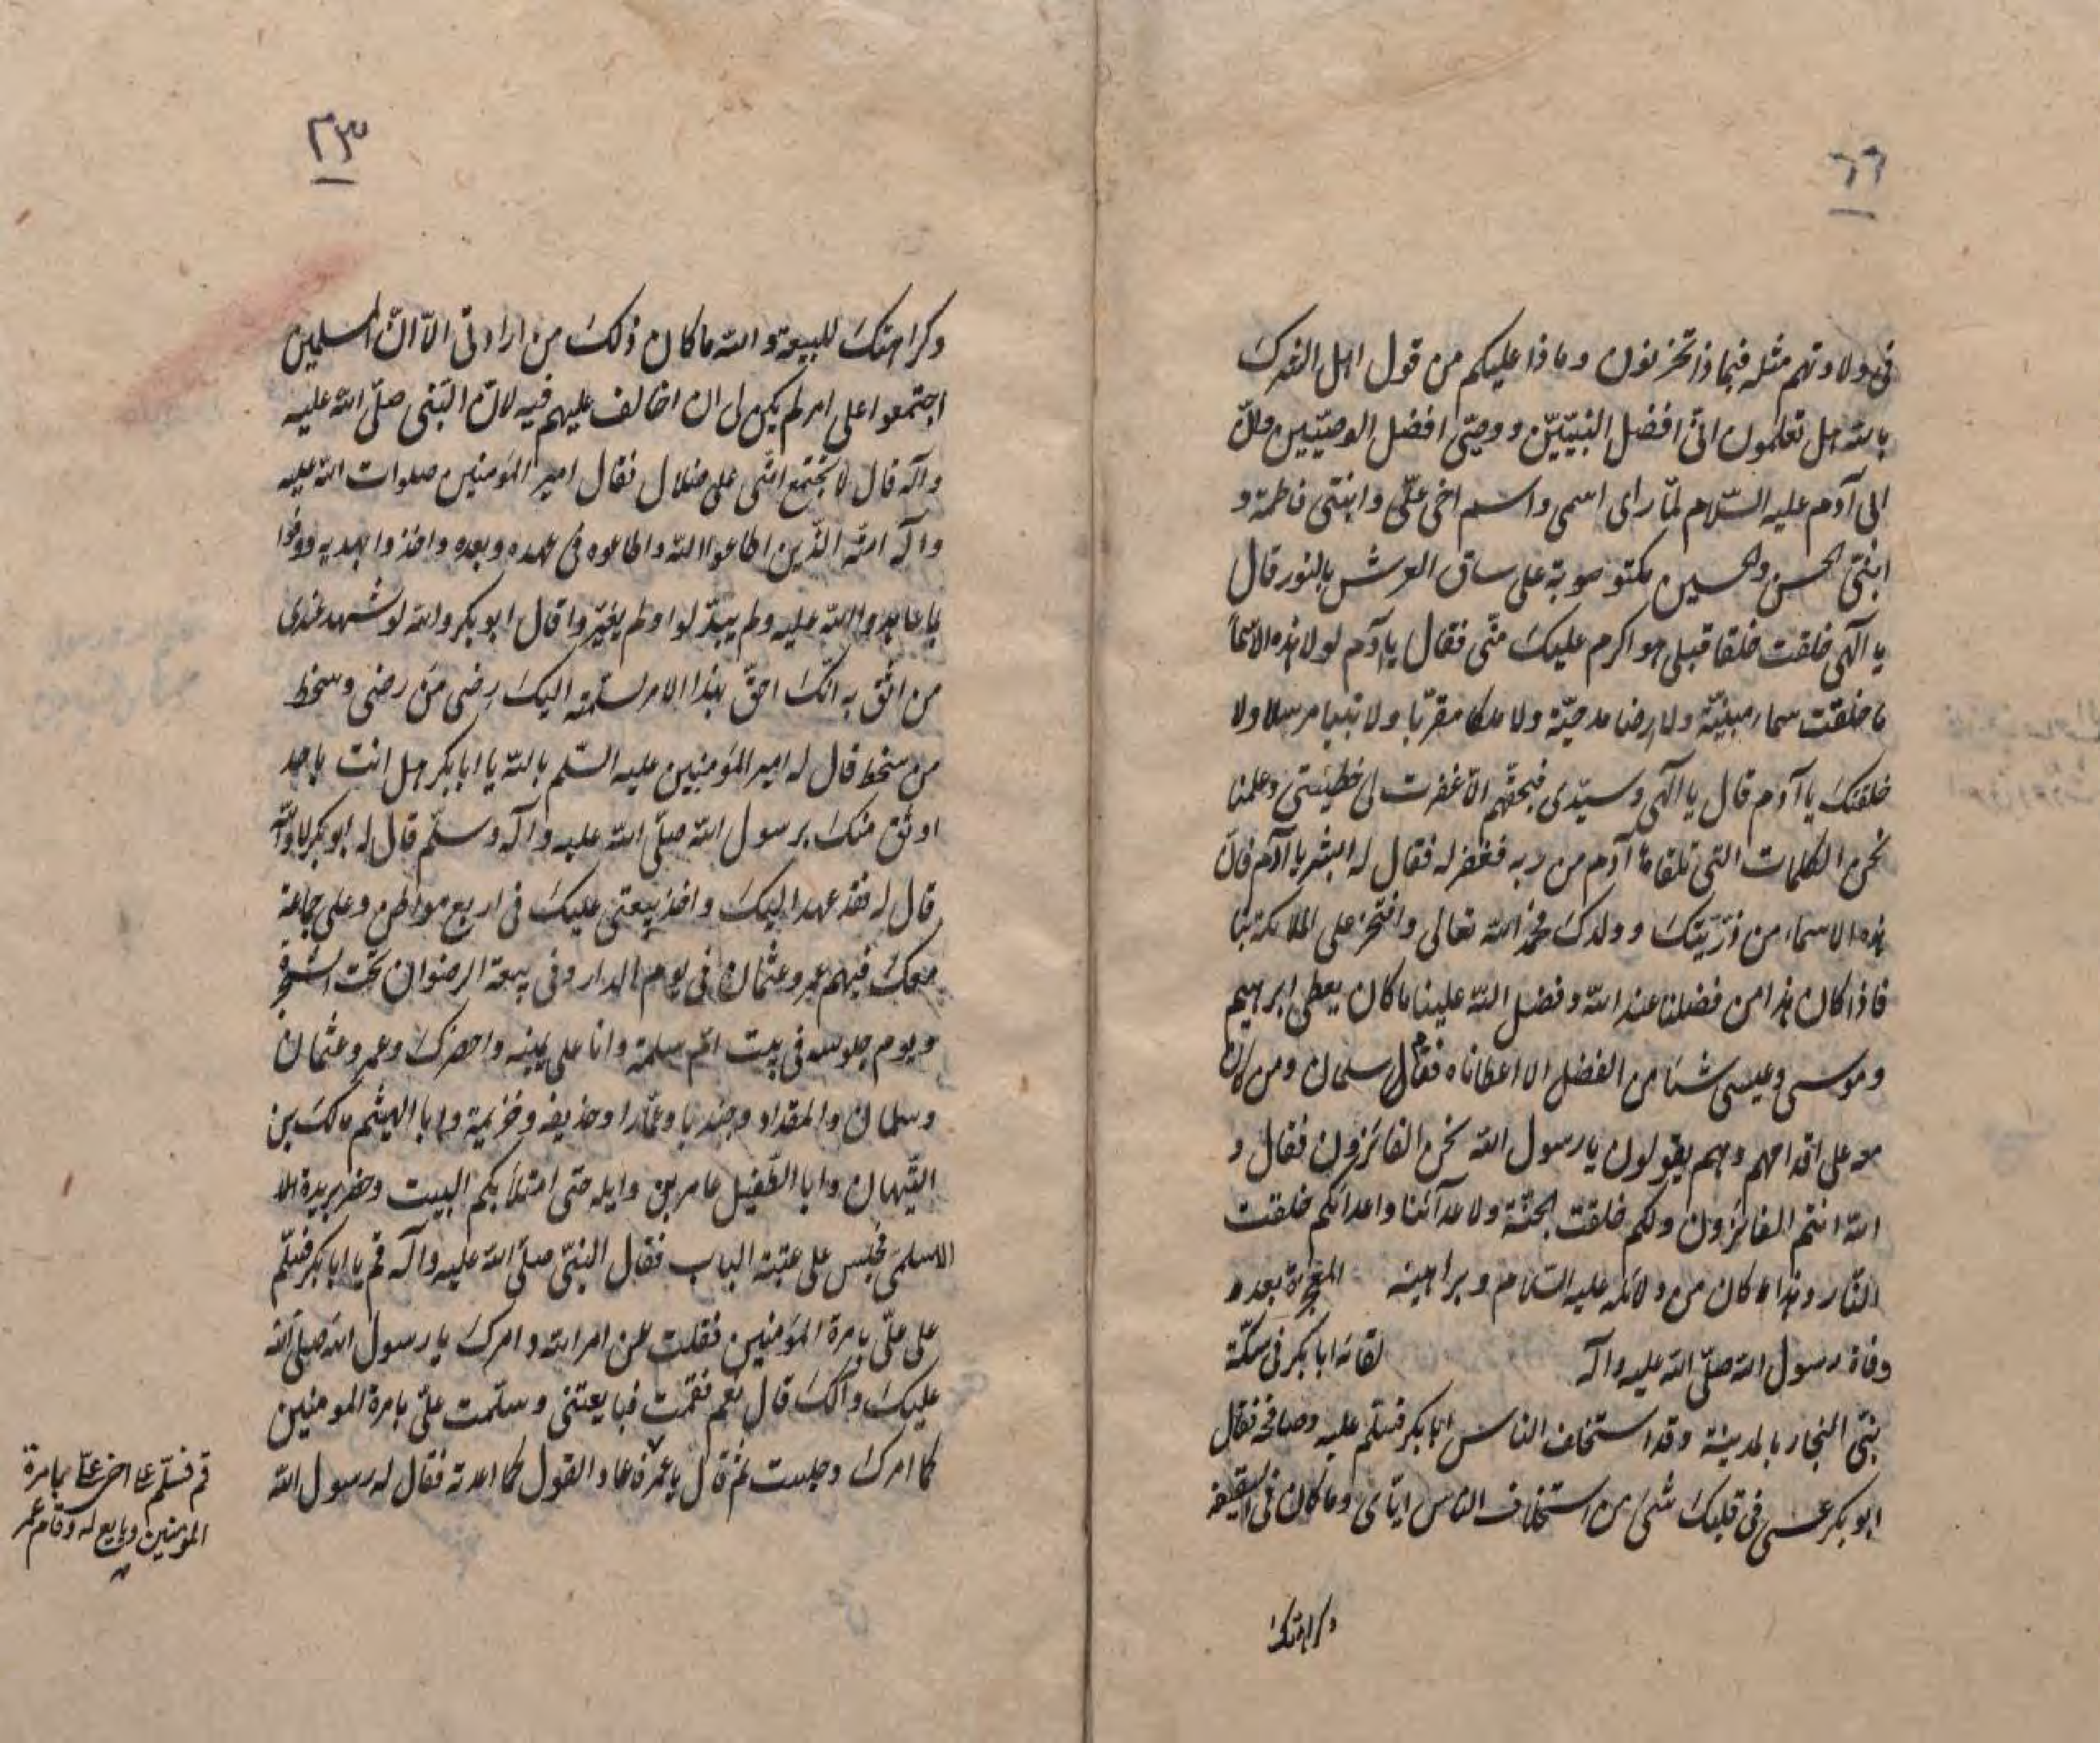 ٦٦
في ولادتهم مثله فبماذا تحزنون وماذا عليكم من قول اهل الشرك
بالله هل تعلمون انى افضل النبيّين ووصيّى افضل الوصيّين وانّ
ابى آدم عليه السّلام لمّا راى اسمى واسم اخى علىّ وابنتى فاطمة و
ابنىّ الحسن والحسين مكتوبة على ساق العرش بالنور قال
يا الٓهى خلقت خلقا قبلى هو اكرم عليك منّى فقال يا آدم لولا هذه الاسماء
ما خلقت سماء مبنيّة ولا ارضا مدحيّة ولا ملكا مقرّبا ولا نبيا مرسلا ولا
خلقتك يا آدم قال يا الٓهى وسيّدى فبحقّهم الّا غفرت لى خطيئتى وعلمنا
نحن الكلمات التى تلقاها آدم من ربه فغفر له فقال له ابشر يا آدم فانّ
هذه الاسماء من ذرّيّتك وولدك فحمد الله تعالى وافتخر على الملائكة بنا
فاذا كان هذا من فضلنا عند الله وفضل الله علينا ما كان يعطى ابرهيم
وموسى وعيسى شيئا من الفضل الا اعطاناه فقام سلمان ومن كان
معه على اقدامهم وهم يقولون يا رسول الله نحن الفائزون فقال و
الله انتم الفائزون ولكم خلقت الجنّة ولاعدآئنا واعدائكم خلقت
النّار وهذا ما كان من دلائله عليه السّلام وبراهينه المعجزة بعد
وفاة رسول الله صلّى الله عليه وآله لقائه ابا بكر فى سكّة
بنى النجار بالمدينة وقد استخلف الناس ابا بكر فسلّم عليه وصافحه فقال
ابو بكر عسى فى قلبك شئ من استخلاف الناس ايّاى وما كان فى السقيفة
وكراهتك
٢٣
وكراهتك للبيعة والله ما كان ذلك من ارادتى الّا انّ المسلمين
اجتمعوا على امر لم يكن لى ان اخالف عليهم فيه لانّ النّبى صلّى الله عليه
وآله قال لا يجتمع امّتى على ضلال فقال امير المؤمنين صلوات الله عليه
وآله امّته الّذين اطاعوا الله واطاعوه فى عهده وبعده واخذوا بهديه ووفوا
بما عاهدوا الله عليه ولم يبدّلوا ولم يغيّروا قال ابو بكر والله لو شهد عندى
من اثق به انّك احقّ بهذا الامر لسلّمته اليك رضى من رضى وسخط
من سخط قال له امير المؤمنين عليه السّلم بالله يا ابا بكر هل انت باحد
اوثق منك برسول الله صلّى الله عليه وآله وسلّم قال له ابو بكر لا والله
قال له فقد عهد اليك واخذ بيعتى عليك فى اربع مواطن وعلى جماعة
معك فيهم عمر وعثمان فى يوم الدار وفى بيعة الرضوان تحت الشجرة
ويوم جلوسه فى بيت امّ سلمة وانا على يمينه واحضرك وعمر وعثمان
وسلمان والمقداد وجندبا وعمّارا وحذيفه وخزيمة وابا الهيثم مالك بن
التّيهان وابا الطّفيل عامر بن وايله حتى امتلأ بكم البيت وحضر بريدة
الاسلمى فجلس على عتبة الباب فقال النبىّ صلّى الله عليه وآله قم يا ابا بكر فسلّم
على علىّ بامرة المؤمنين فقلت عن امر الله وامرك يا رسول الله صلّى الله
عليك وآلك قال نعم فقمت فبايعتنى وسلّمت علىّ بامرة المومنين
كما امرك وجلست ثمّ قال يا عمر فعاد القول كما اعدته فقال له رسول الله
قم فسلّم على اخى علىّ بامرة
المومنين وبايع له وقام عمر